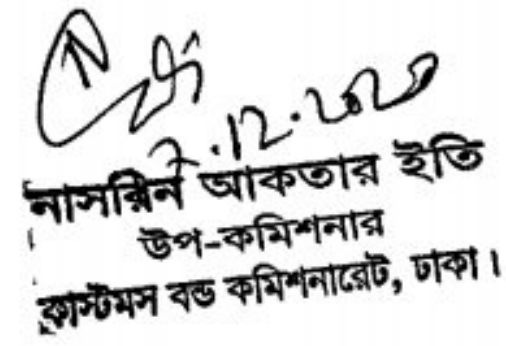 ২.১২.২০২০
নাসরিন আকতার ইতি
উপ-কমিশনার
কাস্টমস বন্ড কমিশনারেট, ঢাকা।